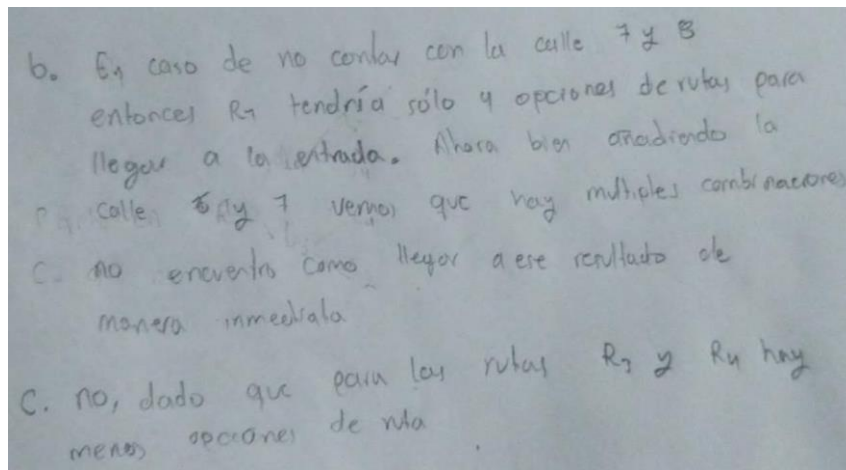 b. En caso de no contar con la calle 7 y 8
entonces R₇ tendría sólo 4 opciones de rutas para
llegar a la entrada. Ahora bien añadiendo la
calle y 7 vemos que hay multiples combinaciones
C. no encuentro como llegar a ese resultado de
manera inmediata
C. no, dado que para las rutas R₇ y R₄ hay
menos opciones de ruta